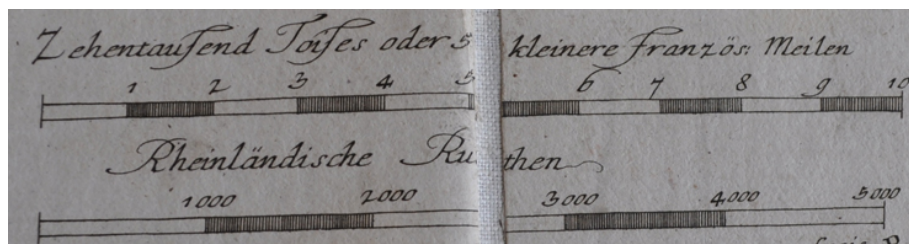 Zehentausend Toises oder 5 kleinere Französ: Meilen
1 2 3 4 5 6 7 8 9 10
Rheinländische Ru then
1000 2000 3000 4000 5000